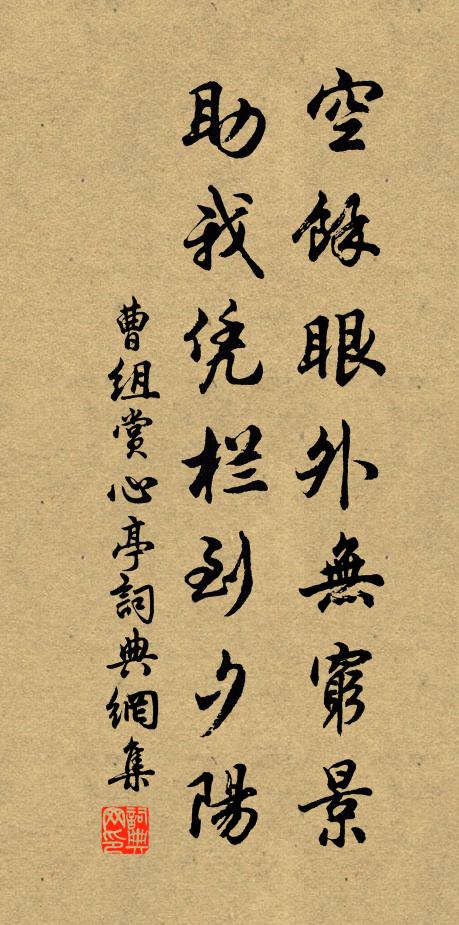 空餘眼外無窮景
助我凭栏到夕陽
曹組賞心亭詞典網集
詞典网印